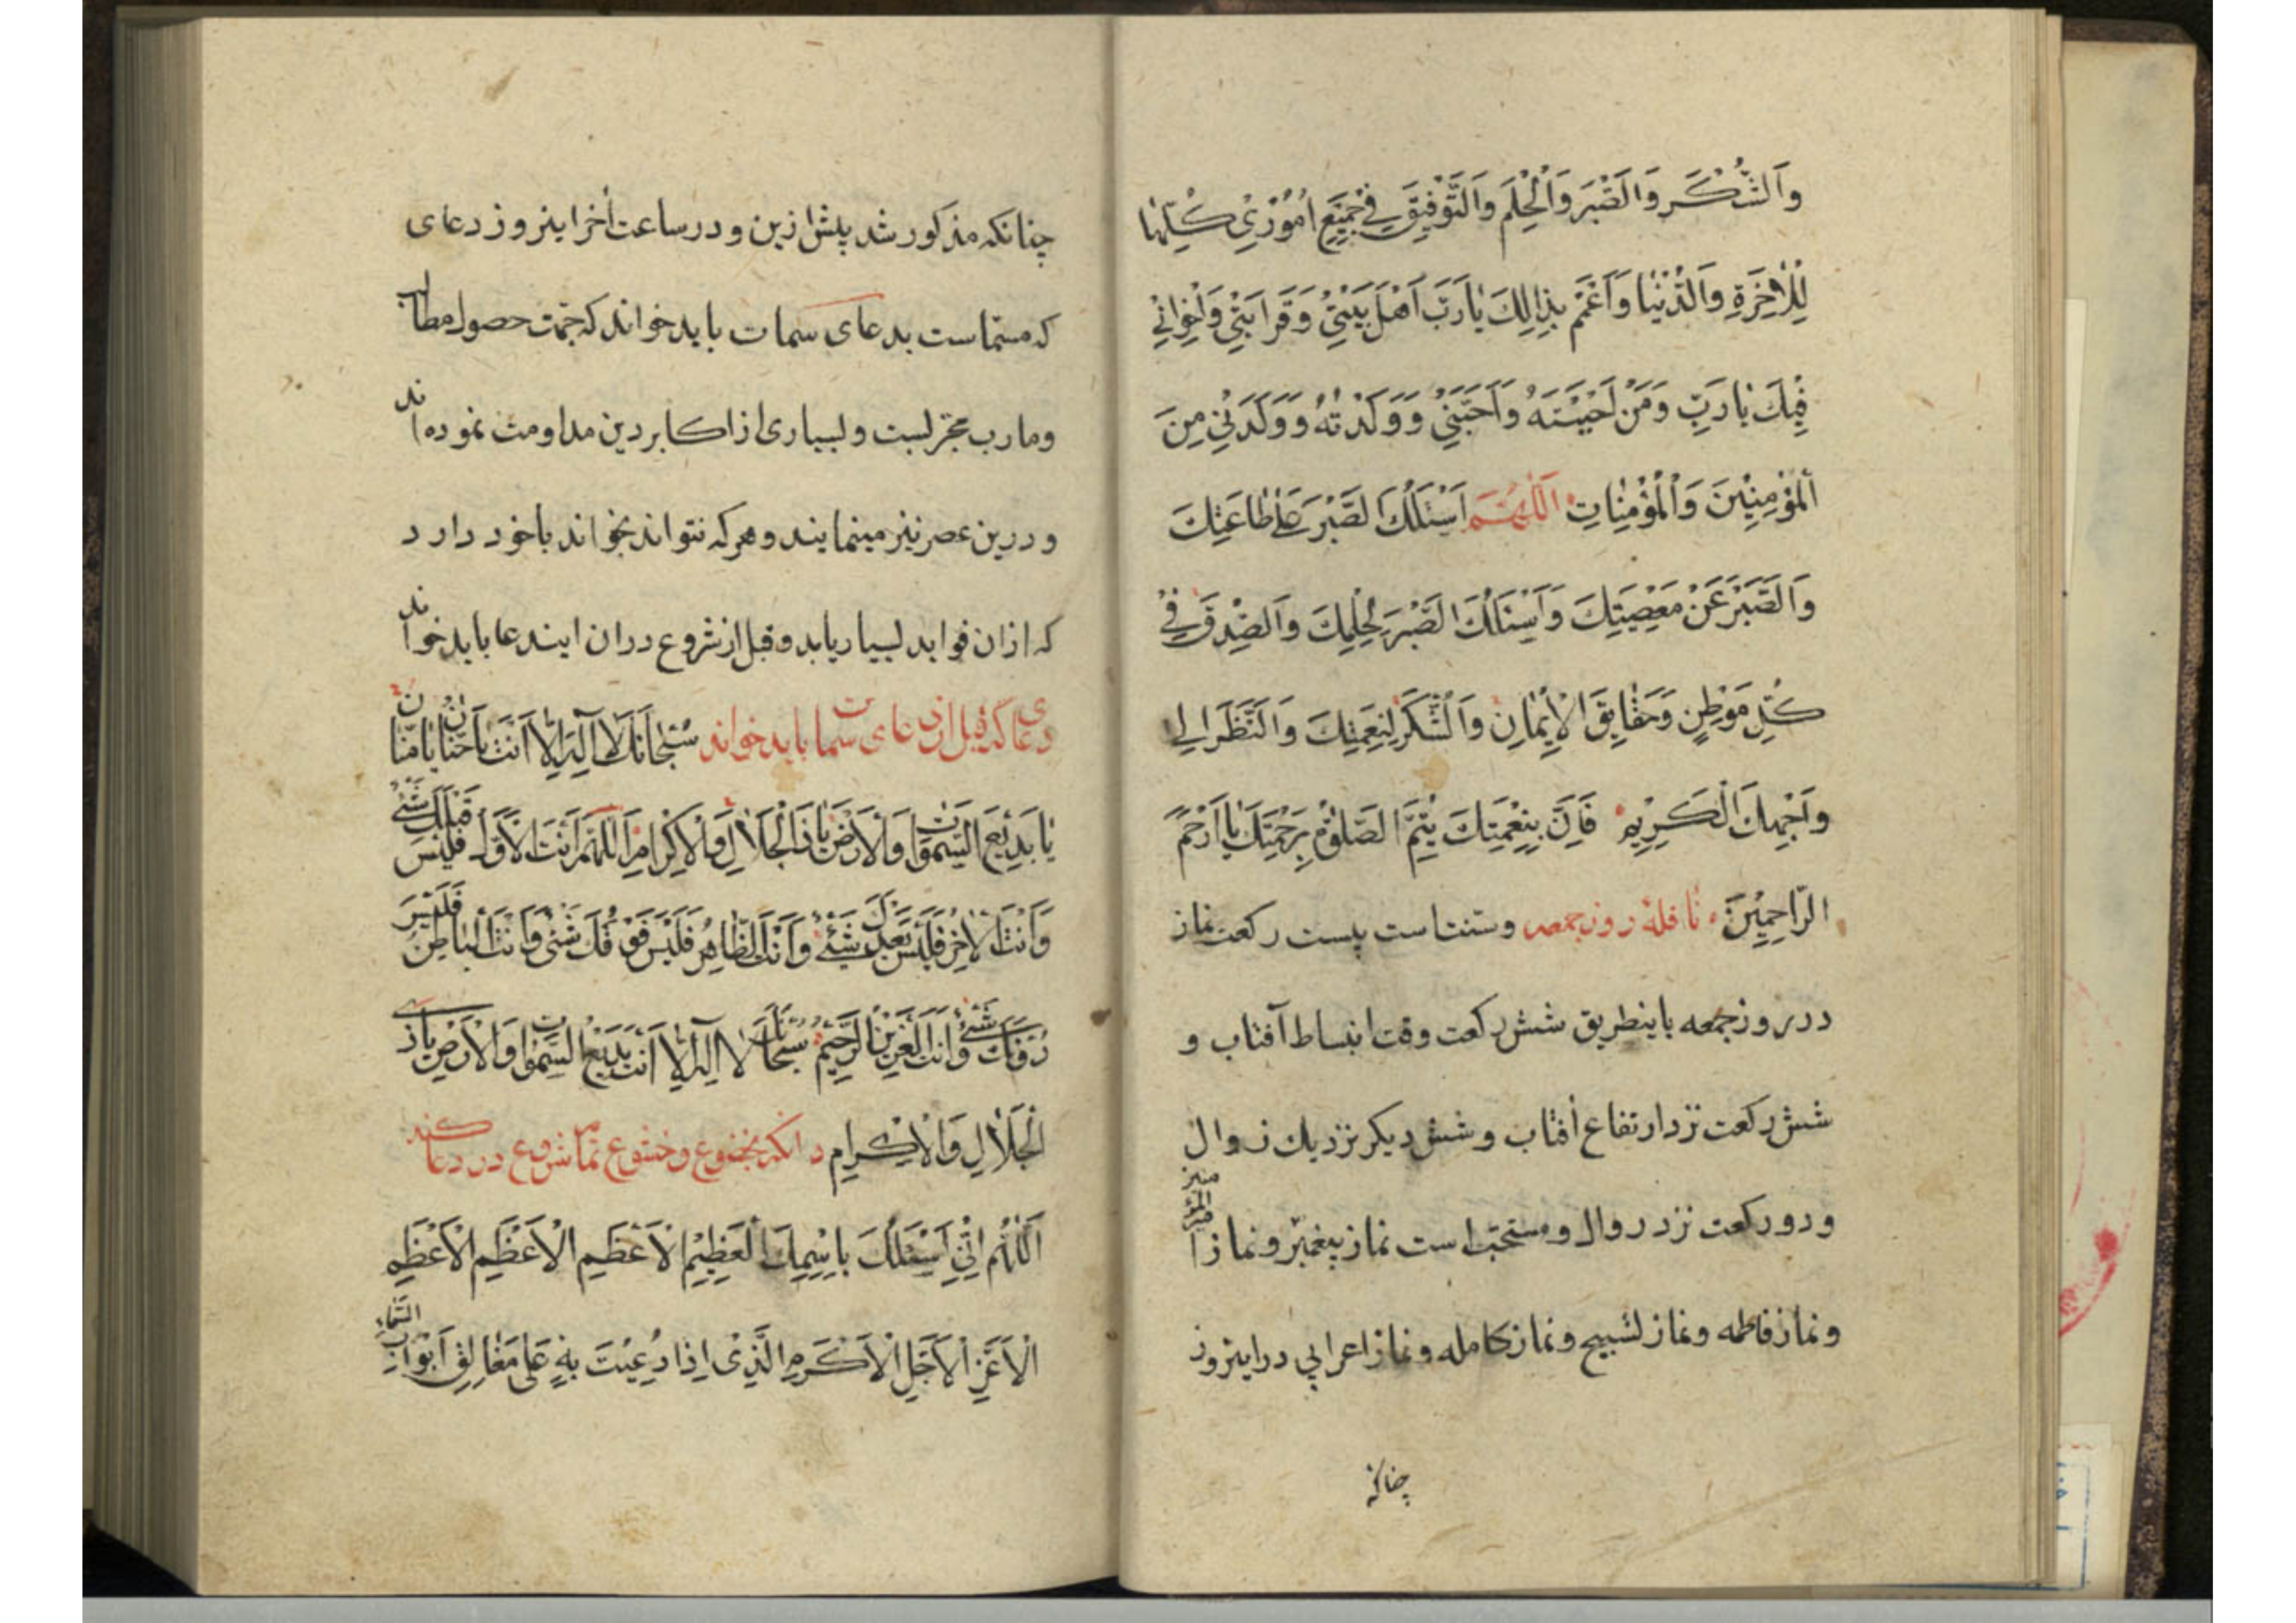 وَالشُّكْرَ وَالصَّبْرَ وَالْحِلْمَ وَالتَّوْفِيقَ فِي جَمِيعِ اُمُورِي كُلِّهَا
لِلْاٰخِرَةِ وَالدُّنْيَا وَاَعْمُمْ بِذٰلِكَ يَارَبِّ اَهْلَ بَيْتِي وَقَرَابَتِي وَاِخْوَانِي
فِيكَ يَارَبِّ وَمَنْ اَحْبَبْتَهُ وَاَحَبَّنِي وَوَلَدْتُهُ وَوَلَدَنِي مِنَ
الْمُؤْمِنِينَ وَالْمُؤْمِنَاتِ اَللّٰهُمَّ اَسْئَلُكَ الصَّبْرَ عَلٰى طَاعَتِكَ
وَالصَّبْرَ عَنْ مَعْصِيَتِكَ وَاَسْئَلُكَ الصَّبْرَ لِحُكْمِكَ وَالصِّدْقَ فِي
كُلِّ مَوْطِنٍ وَحَقَايِقَ الْاِيمَانِ وَالشُّكْرَ لِنِعْمَتِكَ وَالنَّظَرَ اِلٰى
وَاَجْهِكَ الْكَرِيمِ فَاِنَّ بِنِعْمَتِكَ يُتِمُّ الصَّلٰوةُ بِرَحْمَتِكَ يَا اَرْحَمَ
الرَّاحِمِينَ نافلهٔ روز جمعه وسنت است بیست رکعت نماز
در روز جمعه باینطریق شش رکعت وقت انبساط آفتاب و
شش رکعت نزد ارتفاع آفتاب و شش دیکر نزدیك زوال
و دو رکعت نزد زوال و مستحبّ است نماز پیغمبر و نماز امیر المؤمنین
و نماز فاطمه و نماز تسبیح و نماز کامله و نماز اعرابی در اینروز
چنانکه
چنانکه مذکور شد پیش ازین و در ساعت آخر اینروز دعای
که مسمّاست بدعای سمات باید خواند که جهت حصول مطالب
و مارب مجرّبست و بسیاری از اکابر دین مداومت نموده‌اند
و درین عصر نیز مینمایند و هرکه نتواند بخواند باخود دارد
که ازان فواید بسیار یابد و قبل از شروع دران ایندعا باید خواند
دعای که قبل از دعای سمات باید خواند سُبْحَانَكَ لَا اِلٰهَ اِلَّا اَنْتَ يَاحَنَّانُ يَامَنَّانُ
يَا بَدِيعَ السَّمٰوَاتِ وَالْاَرْضِ يَاذَا الْجَلَالِ وَالْاِكْرَامِ اَللّٰهُمَّ اَنْتَ الْاَوَّلُ فَلَيْسَ قَبْلَكَ شَيْءٌ
وَاَنْتَ الْاٰخِرُ فَلَيْسَ بَعْدَكَ شَيْءٌ وَاَنْتَ الظَّاهِرُ فَلَيْسَ فَوْقَكَ شَيْءٌ وَاَنْتَ الْبَاطِنُ فَلَيْسَ
دُونَكَ شَيْءٌ وَاَنْتَ الْعَزِيزُ الرَّحِيمُ سُبْحَانَكَ لَا اِلٰهَ اِلَّا اَنْتَ بَدِيعَ السَّمٰوَاتِ وَالْاَرْضِ يَاذَا
الْجَلَالِ وَالْاِكْرَامِ وانکه بخضوع و خشوع تمام شروع در دعا کند
اَللّٰهُمَّ اِنِّي اَسْئَلُكَ بِاسْمِكَ الْعَظِيمِ الْاَعْظَمِ الْاَعْظَمِ الْاَعْظَمِ
الْاَعَزِّ الْاَجَلِّ الْاَكْرَمِ الَّذِي اِذَا دُعِيتَ بِهِ عَلٰى مَغَالِقِ اَبْوَابِ السَّمَاءِ